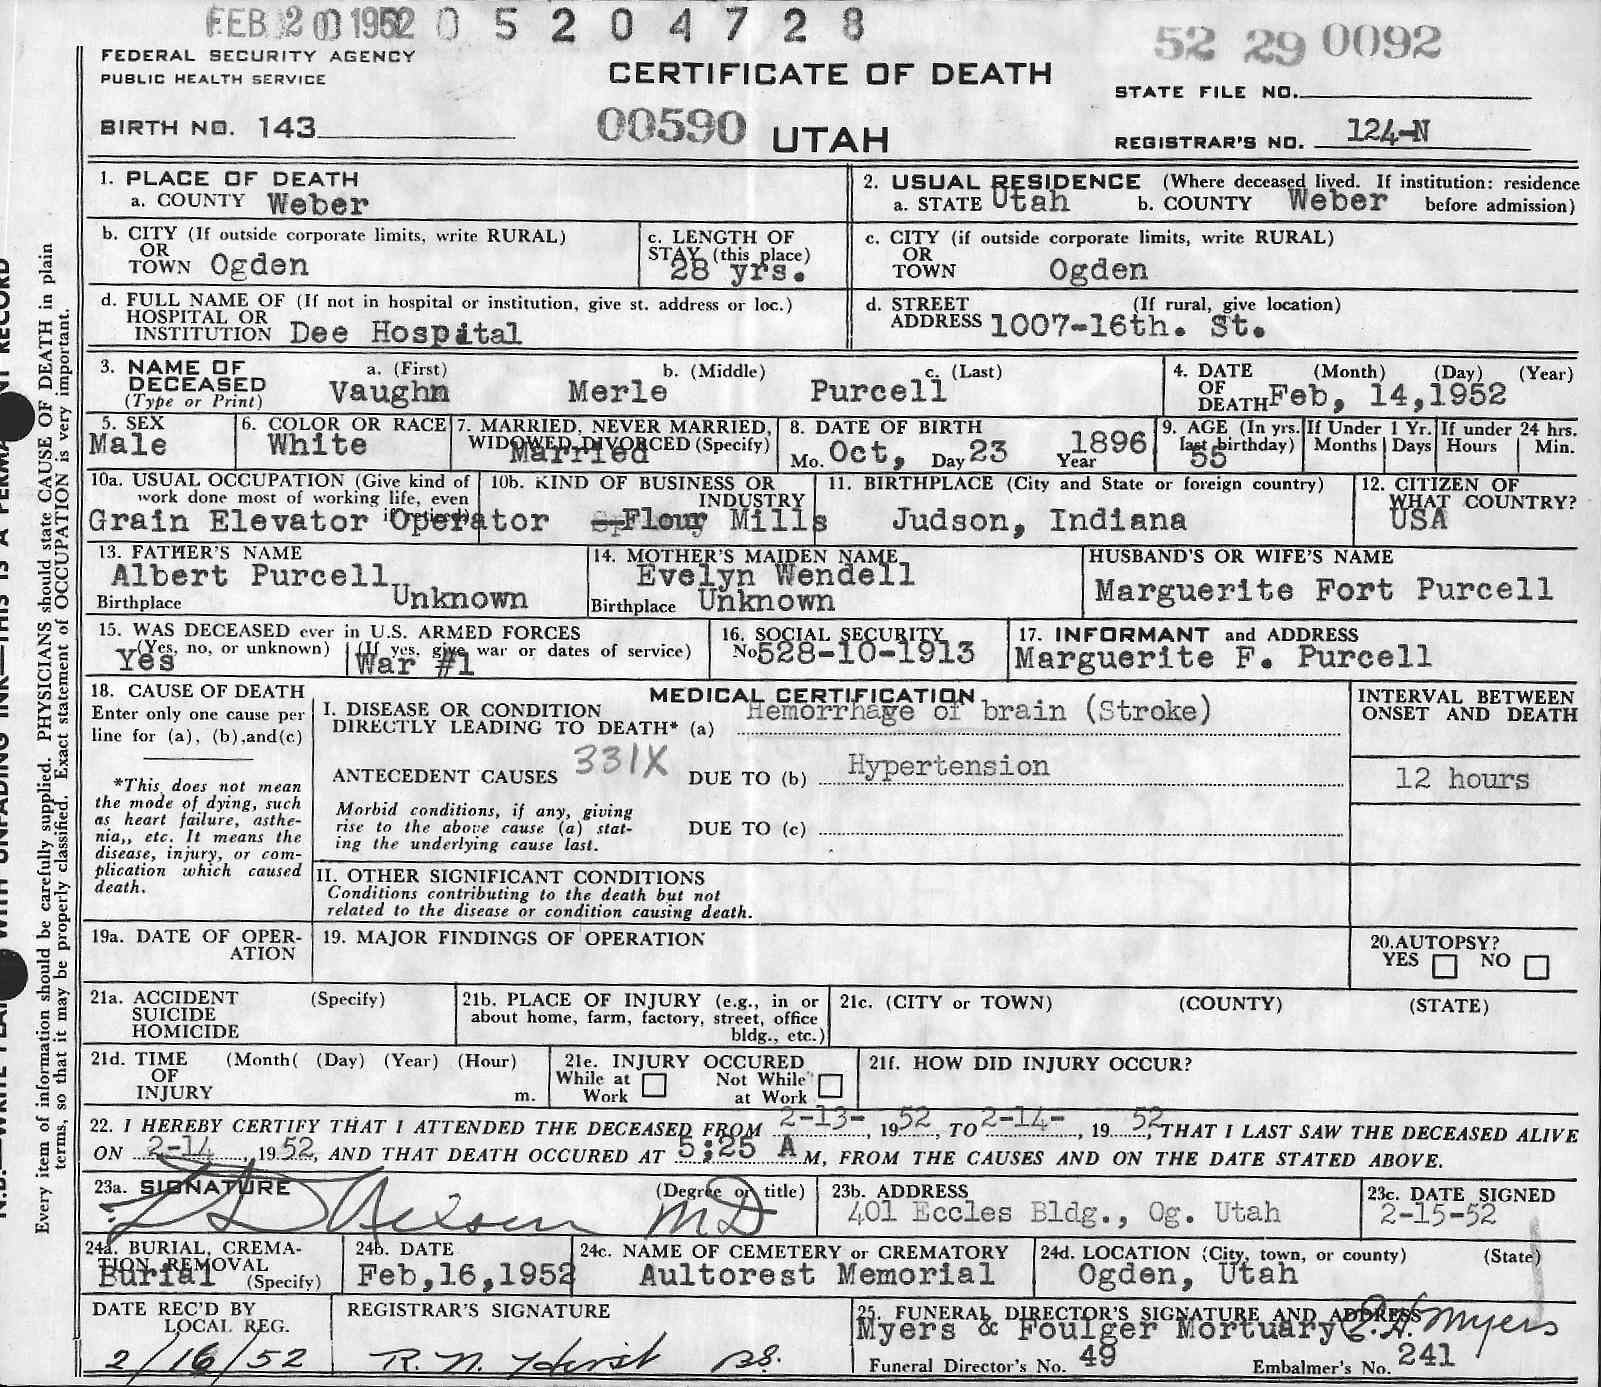 FEB 20 1952 0 5 2 0 4 7 2 8
52 29 0092
FEDERAL SECURITY AGENCY
PUBLIC HEALTH SERVICE
CERTIFICATE OF DEATH
STATE FILE NO.
BIRTH NO. 143
00590 UTAH
REGISTRAR'S NO. 124-N
1. PLACE OF DEATH
a. COUNTY Weber
2. USUAL RESIDENCE (Where deceased lived. If institution: residence
a. STATE Utah b. COUNTY Weber before admission)
b. CITY (If outside corporate limits, write RURAL)
OR
TOWN Ogden
c. LENGTH OF
STAY (this place)
28 yrs.
c. CITY (if outside corporate limits, write RURAL)
OR
TOWN Ogden
d. FULL NAME OF (If not in hospital or institution, give st. address or loc.)
HOSPITAL OR
INSTITUTION Dee Hospital
d. STREET (If rural, give location)
ADDRESS 1007-16th. St.
3. NAME OF a. (First) b. (Middle) c. (Last)
DECEASED Vaughn Merle Purcell
(Type or Print)
4. DATE (Month) (Day) (Year)
OF
DEATH Feb, 14,1952
5. SEX
Male
6. COLOR OR RACE
White
7. MARRIED, NEVER MARRIED,
WIDOWED, DIVORCED (Specify)
Married
8. DATE OF BIRTH
Mo. Oct, Day 23 Year 1896
9. AGE (In yrs.
last birthday)
55
If Under 1 Yr.
Months Days
If under 24 hrs.
Hours Min.
10a. USUAL OCCUPATION (Give kind of
work done most of working life, even
if retired)
Grain Elevator Operator
10b. KIND OF BUSINESS OR
INDUSTRY
Flour Mills
11. BIRTHPLACE (City and State or foreign country)
Judson, Indiana
12. CITIZEN OF
WHAT COUNTRY?
USA
13. FATHER'S NAME
Albert Purcell
Birthplace Unknown
14. MOTHER'S MAIDEN NAME
Evelyn Wendell
Birthplace Unknown
HUSBAND'S OR WIFE'S NAME
Marguerite Fort Purcell
15. WAS DECEASED ever in U.S. ARMED FORCES
(Yes, no, or unknown) (If yes, give war or dates of service)
Yes War #1
16. SOCIAL SECURITY
No 528-10-1913
17. INFORMANT and ADDRESS
Marguerite F. Purcell
18. CAUSE OF DEATH
Enter only one cause per
line for (a), (b),and(c)
*This does not mean
the mode of dying, such
as heart failure, asthe-
nia,, etc. It means the
disease, injury, or com-
plication which caused
death.
MEDICAL CERTIFICATION
I. DISEASE OR CONDITION
DIRECTLY LEADING TO DEATH* (a) Hemorrhage of brain (Stroke)
ANTECEDENT CAUSES 331X DUE TO (b) Hypertension
Morbid conditions, if any, giving
rise to the above cause (a) stat-
ing the underlying cause last.
DUE TO (c)
INTERVAL BETWEEN
ONSET AND DEATH
12 hours
II. OTHER SIGNIFICANT CONDITIONS
Conditions contributing to the death but not
related to the disease or condition causing death.
19a. DATE OF OPER-
ATION
19. MAJOR FINDINGS OF OPERATION
20.AUTOPSY?
YES NO
21a. ACCIDENT (Specify)
SUICIDE
HOMICIDE
21b. PLACE OF INJURY (e.g., in or
about home, farm, factory, street, office
bldg., etc.)
21c. (CITY or TOWN) (COUNTY) (STATE)
21d. TIME (Month( (Day) (Year) (Hour)
OF
INJURY m.
21e. INJURY OCCURED
While at Work Not While at Work
21f. HOW DID INJURY OCCUR?
22. I HEREBY CERTIFY THAT I ATTENDED THE DECEASED FROM 2-13-, 1952, TO 2-14-, 19 52, THAT I LAST SAW THE DECEASED ALIVE
ON 2-14, 19 52, AND THAT DEATH OCCURED AT 5:25 A M, FROM THE CAUSES AND ON THE DATE STATED ABOVE.
23a. SIGNATURE (Degree or title)
MD
23b. ADDRESS
401 Eccles Bldg., Og. Utah
23c. DATE SIGNED
2-15-52
24a. BURIAL, CREMA-
TION, REMOVAL
Burial (Specify)
24b. DATE
Feb,16,1952
24c. NAME OF CEMETERY or CREMATORY
Aultorest Memorial
24d. LOCATION (City, town, or county) (State)
Ogden, Utah
DATE REC'D BY
LOCAL REG.
2/16/52
REGISTRAR'S SIGNATURE
R. N. Hirst
25. FUNERAL DIRECTOR'S SIGNATURE AND ADDRESS
Myers & Foulger Mortuary Myers
Funeral Director's No. 49 Embalmer's No. 241
Every item of information should be carefully supplied. PHYSICIANS should state CAUSE OF DEATH in plain
terms, so that it may be properly classified. Exact statement of OCCUPATION is very important.